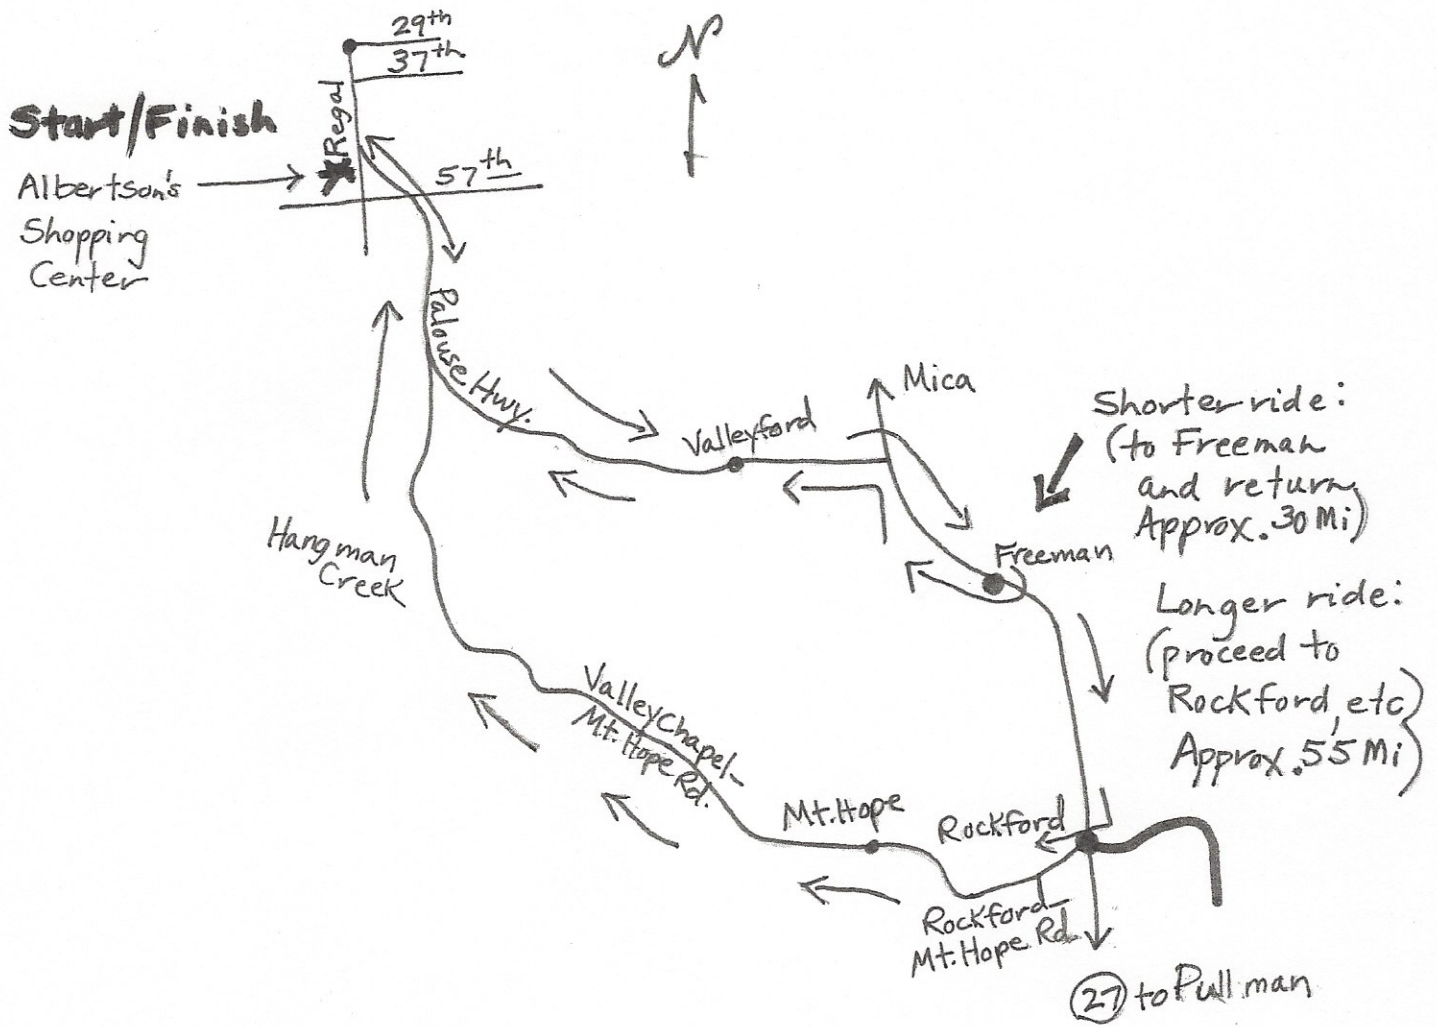 29th
37th
N
Regal
Start/Finish
Albertson's
Shopping
Center
57th
Palouse Hwy.
Mica
Valleyford
Shorter ride:
(to Freeman
and return,
Approx. 30 Mi)
Freeman
Hangman
Creek
Longer ride:
(proceed to
Rockford, etc
Approx. 55 Mi)
Valley Chapel-
Mt. Hope Rd.
Mt. Hope
Rockford
Rockford-
Mt. Hope Rd.
27 to Pullman